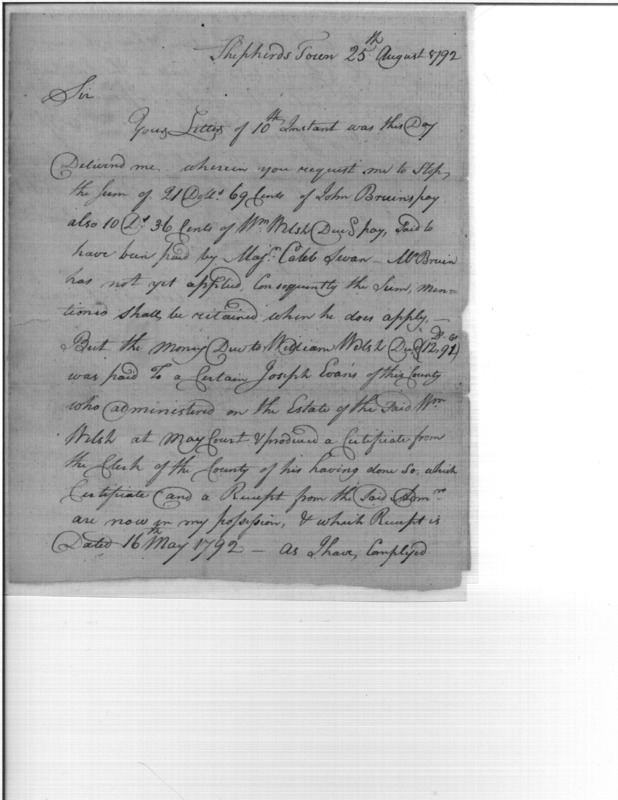 Shepherds Town 25th August 1792
Sir
Your Letter of 10th Instant was this Day
Deliverd me wherein you request me to Stop,
the Sum of 21 Dolls 69 Cents of John Bruins pay
also 10 Ds 36 Cents of Wm Welsh Decd pay, Said to
have been paid by Majr Caleb Swan - Mr Bruin
has not yet applied, Consequently the Sum, men-
tioned Shall, be retained when he does apply, -
But the money Due to William Welsh Decd (12.91)
Ds Cs
was paid To a Certain Joseph Evans of this County
who administered on the Estate of the Said Wm
Welsh at May Court & produced a Certificate from
the Clerk of the County of his having done So, which
Certificate and a Receipt from the Said Admr
are now in my possession, & which Receipt is
Dated 16th May 1792 - as I have, Complyed